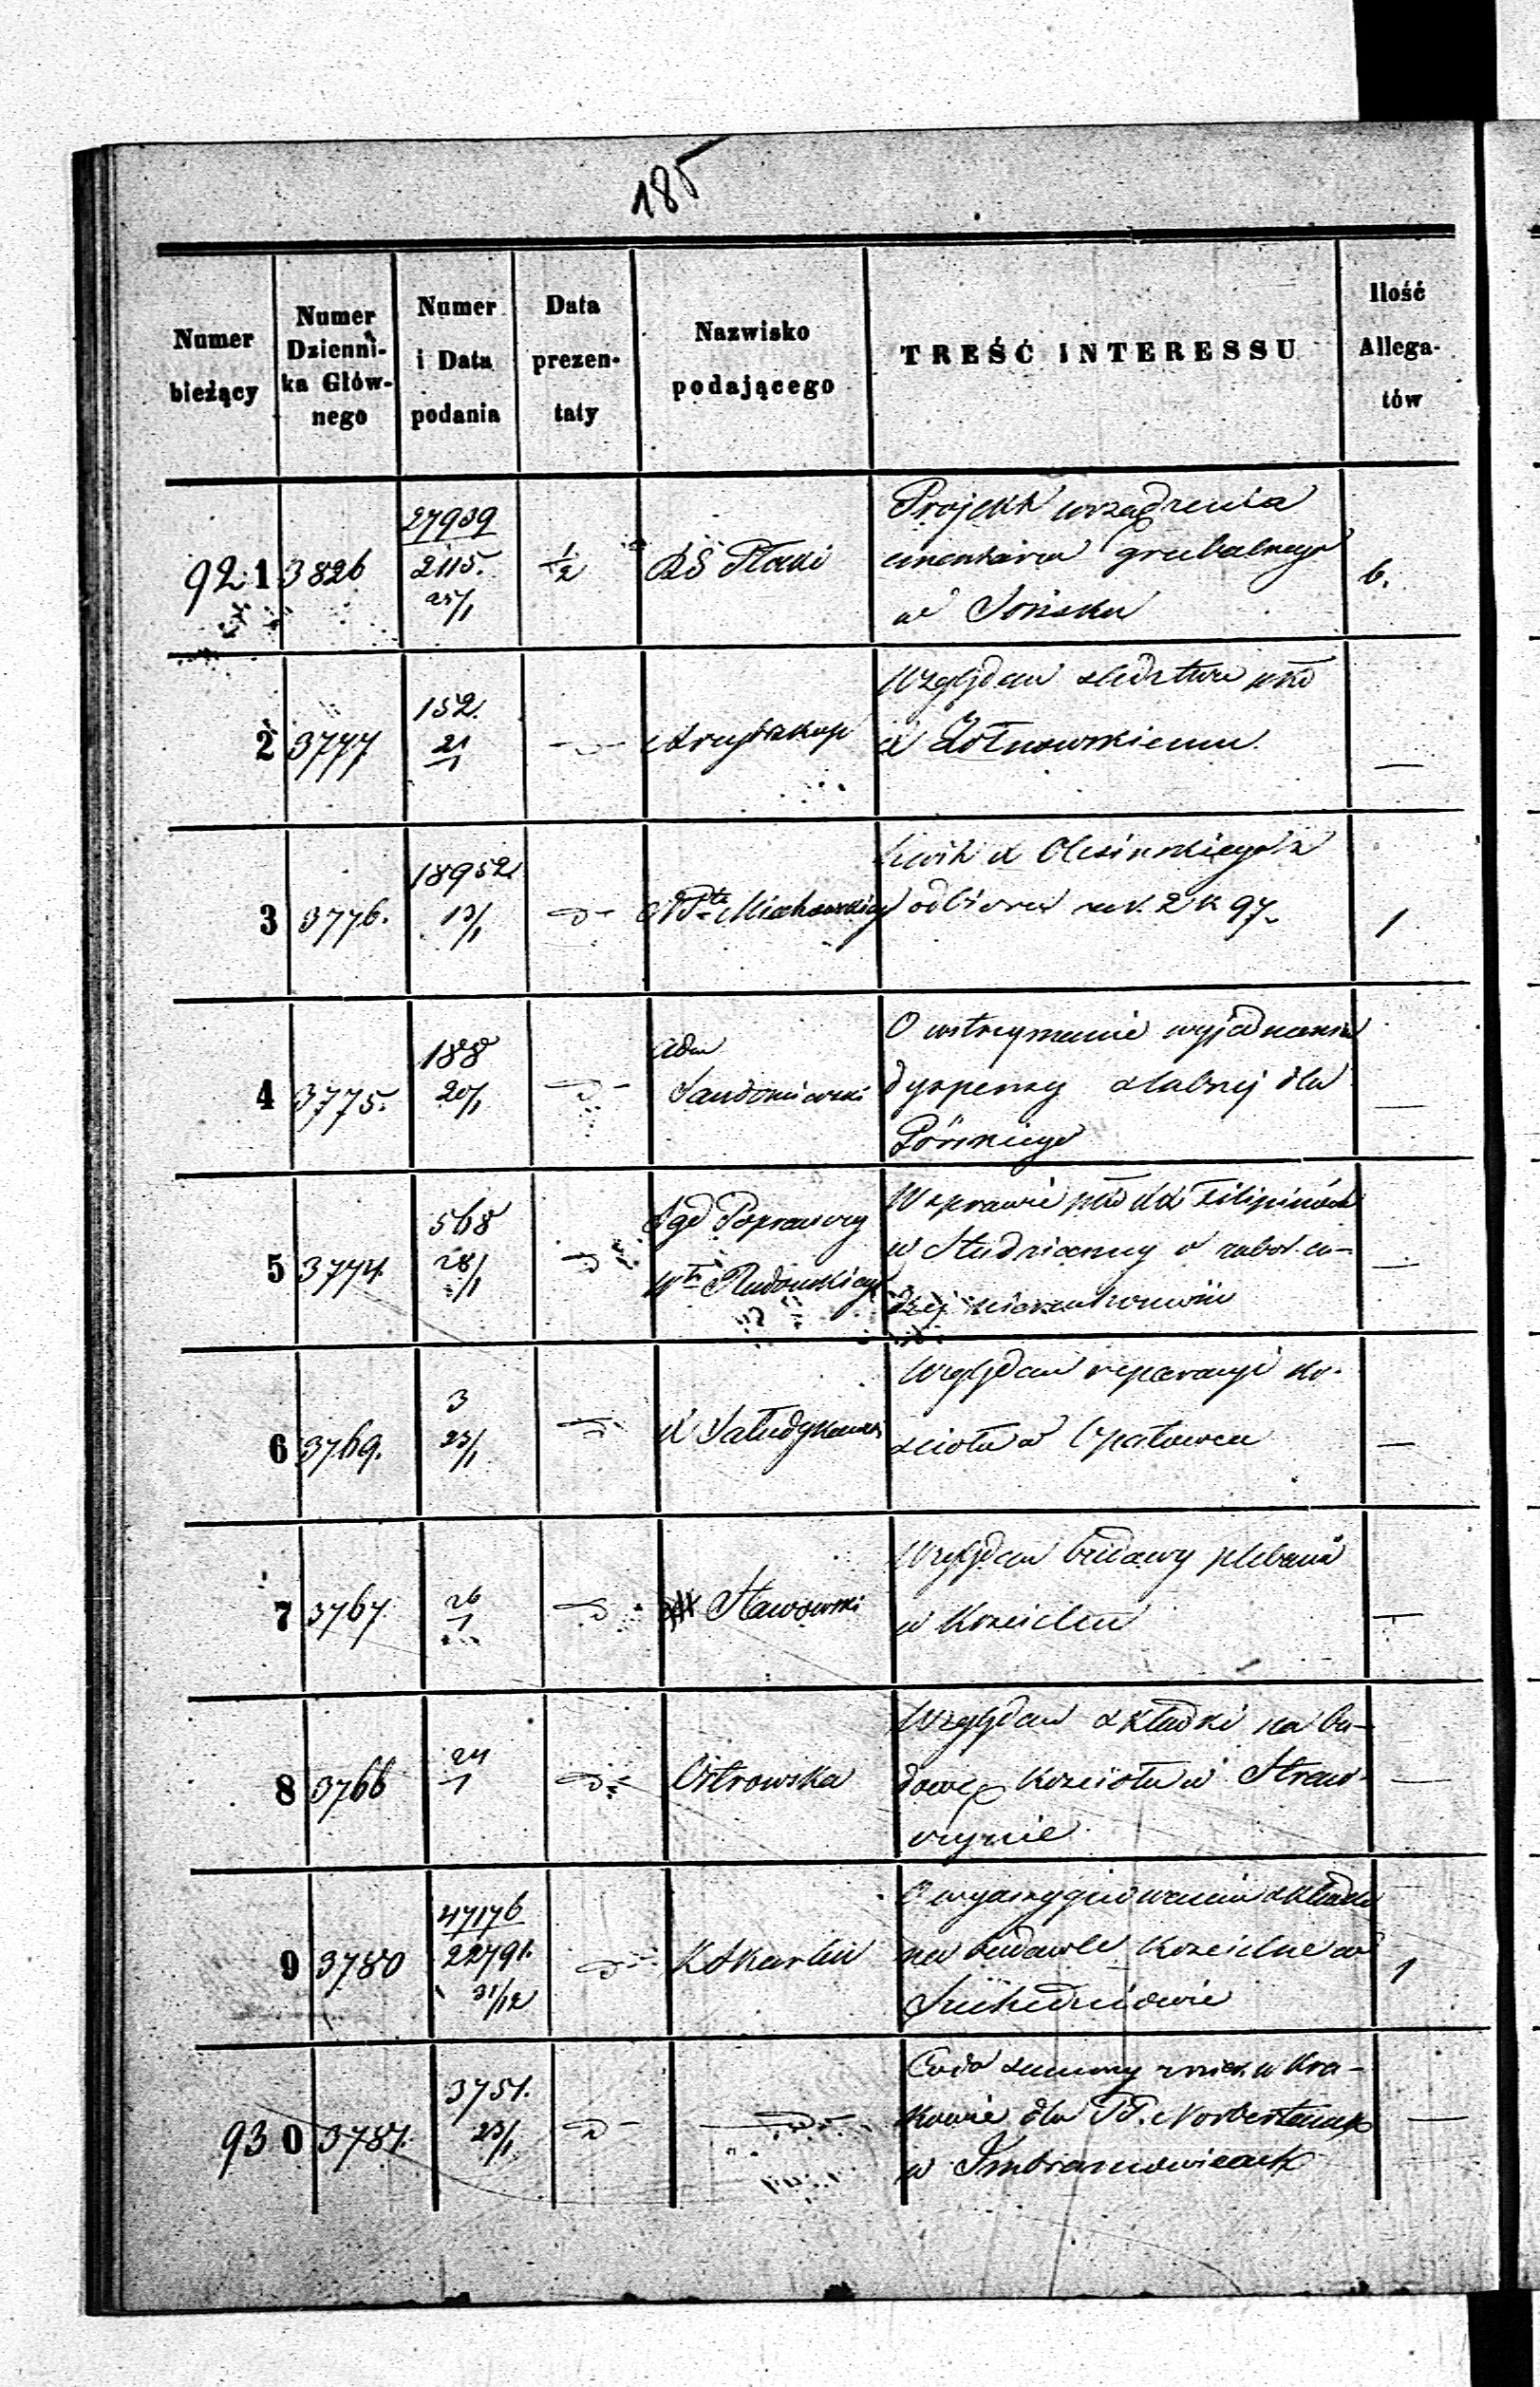 185
Numer bieżący
Numer Dzienni-ka Głów-nego
Numer i Data podania
Data prezen-taty
Nazwisko podającego
TREŚĆ INTERESSU
Ilość Allega-tów
921 3826 27939 2115. 25/1 1/2 RS Płocki
Projekt urządzenia
cmentarza grzebalnego
w Sońsku
6.
2 3777 152. 21/1 — d — Arcybiskup
Względem śledztwa pko
X Żółnowskiemu.
—
3 3776. 18952 13/1 — d — Miechowskiego
kwit X Olesińskiego z
odbioru rs. 2 k 97.
1
4 3775. 188 20/1 — d — Adm Sandomierski
O wstrzymanie wyjednania
dyspensy ślubnej dla
Górskiego
—
5 3774. 568 28/1 — d Sąd Poprawczy Włu Radomskiego
W sprawie pko XX Filipinów
w Studziannej o
—
6 3769. 3 23/1 — d — X Sałudykowski
Względem reparacyi ko-
ścioła w Opatowcu
—
7 3767. 26/1 — d X Stawowski
Względem budowy plebanii
w Kościelcu
—
8 3766 24/1 — d — Ostrowska
Względem składki na bu-
dowę kościoła w
—
9 3780 47176 22791. 31/12 — d — K Skarbu
O wyasygnowaniu składki
na budowle kościelne w
Suchedniowie
1
930 3781. 3751. 23/1 — d — — d —
Co do summy w Kra-
kowie dla PP. Norbertanek
w Imbramowicach
—